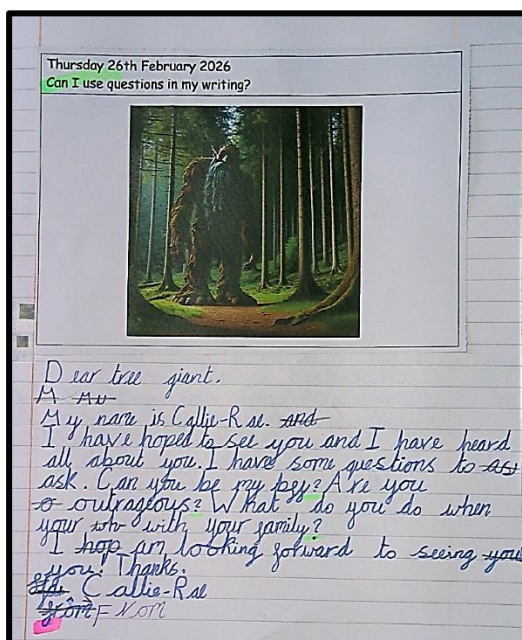 Thursday 26th February 2026
Can I use questions in my writing?
Dear tree giant.
M My
My name is Callie-Rae. and
I have hoped to see you and I have heard
all about you. I have some questions to as
ask. Can you be my bey? Are you
o outrageous? What do you do when
your wh with your family?
I hop am looking forward to seeing you
you! Thanks.
Callie-Rae
from From